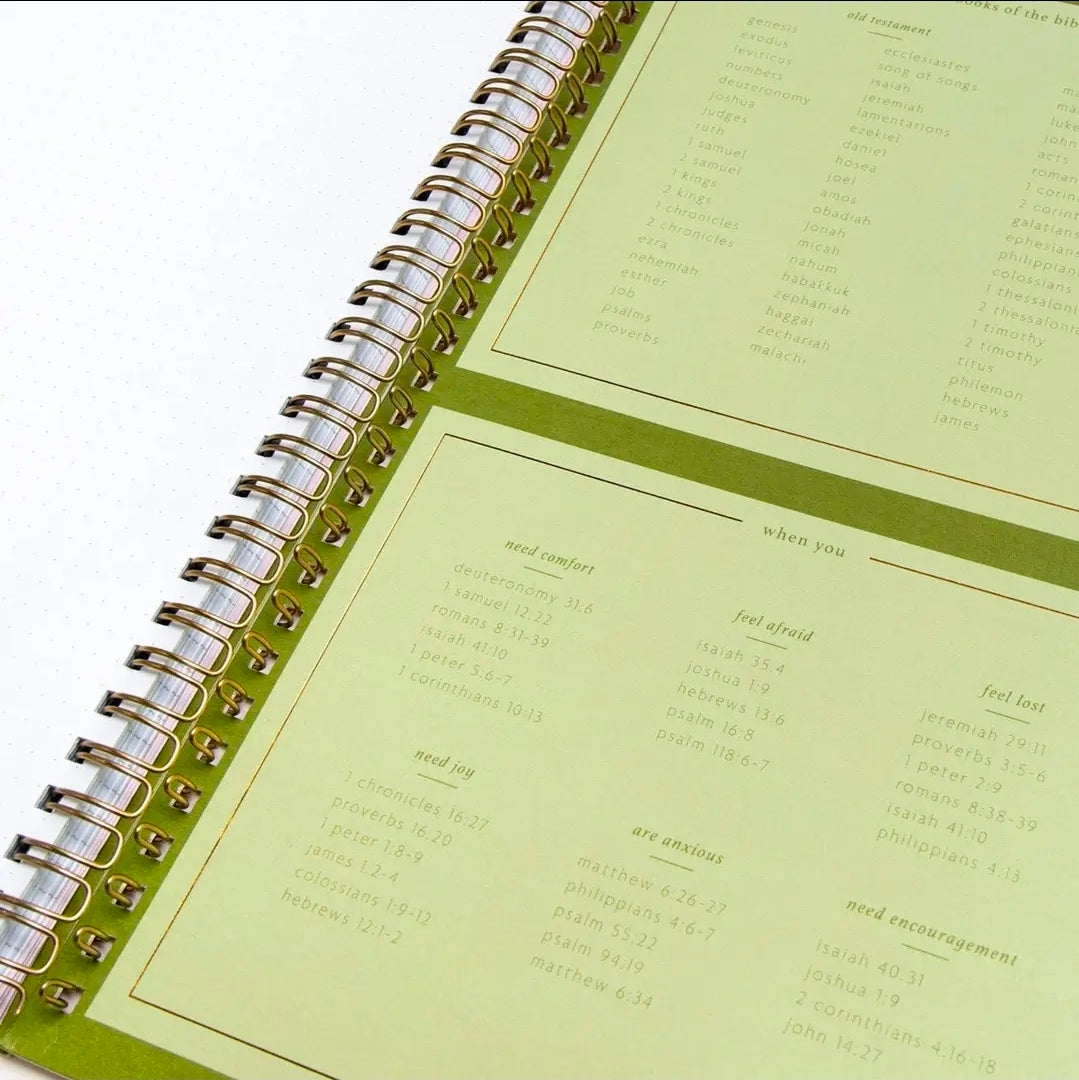 books of the bib
old testament
genesis
exodus
leviticus
numbers
deuteronomy
joshua
judges
ruth
1 samuel
2 samuel
1 kings
2 kings
1 chronicles
2 chronicles
ezra
nehemiah
esther
job
psalms
proverbs
ecclesiastes
song of songs
isaiah
jeremiah
lamentations
ezekiel
daniel
hosea
joel
amos
obadiah
jonah
micah
nahum
habakkuk
zephaniah
haggai
zechariah
malachi
ma
ma
luke
john
acts
roman
1 corin
2 corint
galatians
ephesian
philippian
colossians
1 thessaloni
2 thessalonia
1 timothy
2 timothy
titus
philemon
hebrews
james
when you
need comfort
deuteronomy 31:6
1 samuel 12:22
romans 8:31-39
isaiah 41:10
1 peter 5:6-7
1 corinthians 10:13
feel afraid
isaiah 35:4
joshua 1:9
hebrews 13:6
psalm 16:8
psalm 118:6-7
feel lost
jeremiah 29:11
proverbs 3:5-6
1 peter 2:9
romans 8:38-39
isaiah 41:10
philippians 4:13
need joy
1 chronicles 16:27
proverbs 16:20
1 peter 1:8-9
james 1:2-4
colossians 1:9-12
hebrews 12:1-2
are anxious
matthew 6:26-27
philippians 4:6-7
psalm 55:22
psalm 94:19
matthew 6:34
need encouragement
isaiah 40:31
joshua 1:9
2 corinthians 4:16-18
john 14:27